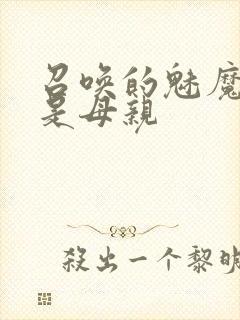 召唤的魅魔
是母親
殺出一个黎明